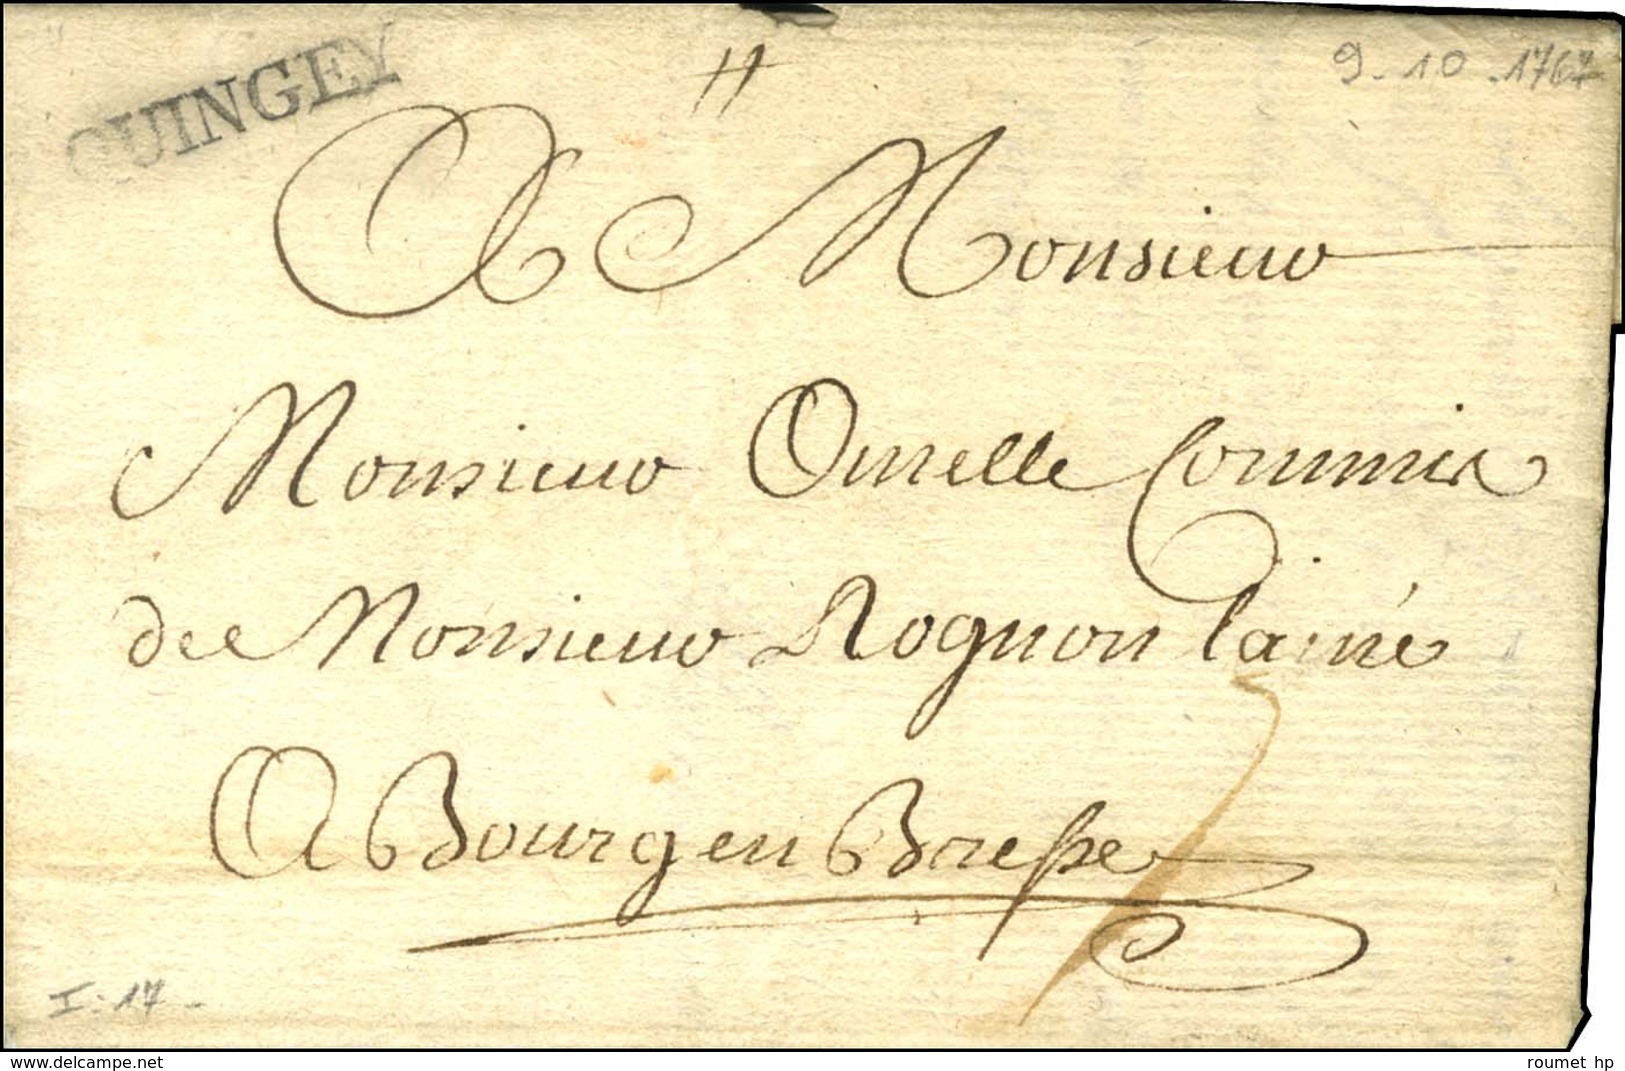 QUINGEY
9-10-1767
A Monsieur
Monsieur Omelle Commis
de Monsieur Rognon lainé
A Bourg en Bresse
I-17-
roumet hp